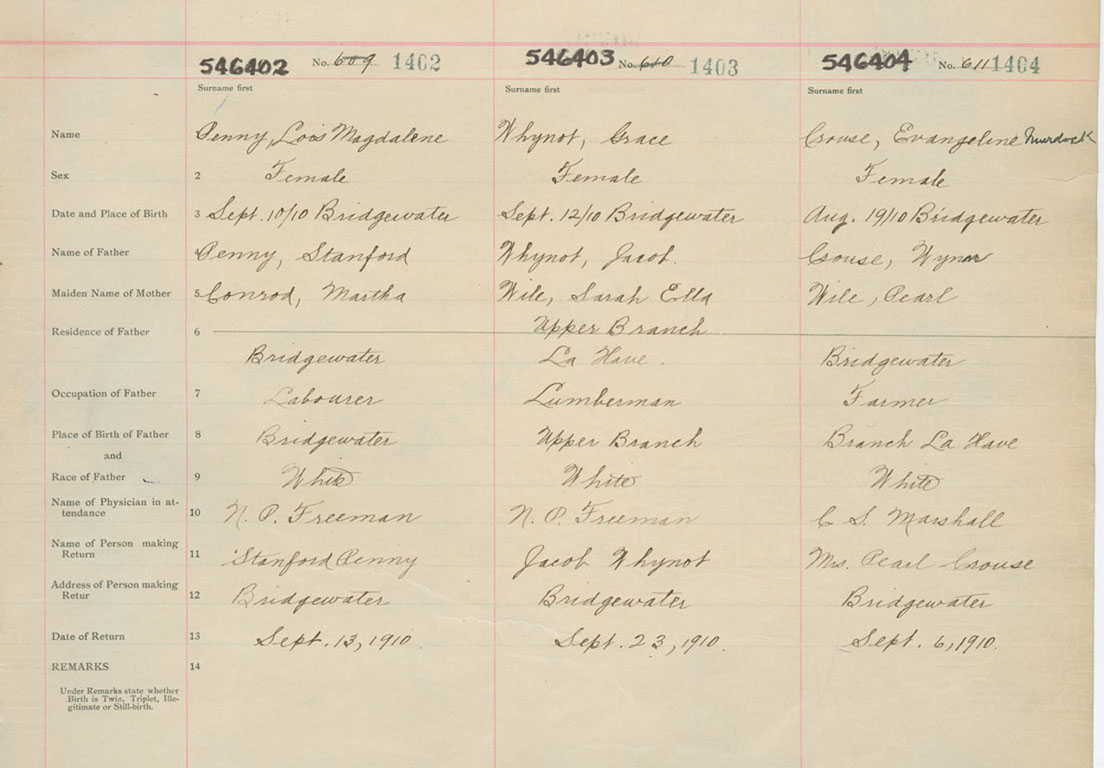 546402 No. 609 1402 546403 No. 610 1403 546404 No. 611 1404
Surname first Surname first Surname first
Name Penny, Lois Magdalene Whynot, Grace Crouse, Evangeline Murdock
Sex 2 Female Female Female
Date and Place of Birth 3 Sept. 10/10 Bridgewater Sept. 12/10 Bridgewater Aug. 19/10 Bridgewater
Name of Father 4 Penny, Stanford Whynot, Jacob. Crouse,
Maiden Name of Mother 5 Conrod, Martha Wile, Sarah Ella Wile, Pearl
Residence of Father 6 Upper Branch
Bridgewater La Have. Bridgewater
Occupation of Father 7 Labourer Lumberman Farmer
Place of Birth of Father 8 Bridgewater Upper Branch Branch La Have
and
Race of Father 9 White White White
Name of Physician in at-
tendance 10 N. P. Freeman N. P. Freeman C S. Marshall
Name of Person making
Return 11 Stanford Penny Jacob Whynot Mrs. Pearl Crouse
Address of Person making
Retur 12 Bridgewater Bridgewater Bridgewater
Date of Return 13 Sept. 13, 1910. Sept. 23, 1910. Sept. 6, 1910.
REMARKS 14
Under Remarks state whether
Birth is Twin, Triplet, Ille-
gitimate or Still-birth.